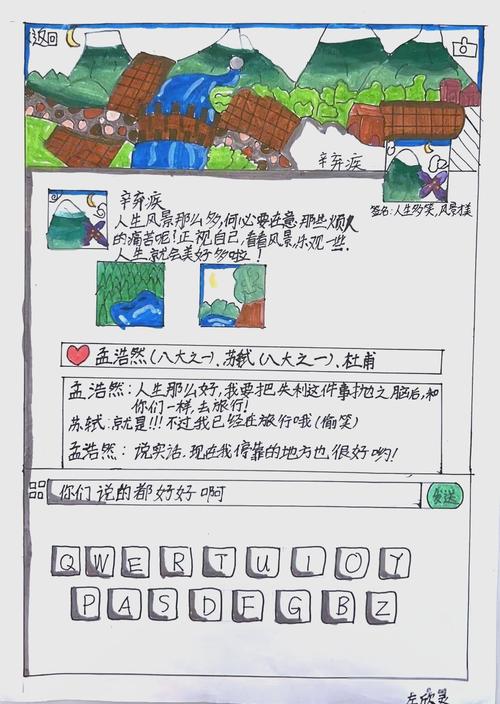 返回
辛弃疾
签名:人生多笑,风景才美
辛弃疾
人生风景那么多,何必要在意那些烦人
的痛苦呢!正视自己,看看风景,乐观一些.
人生就会美好多啦!
孟浩然(八大之一)、苏轼(八大之一)、杜甫
孟浩然:人生那么好,我要把失利这件事抛之脑后,和
你们一样,去旅行!
苏轼:就是!!!不过我已经在旅行哦(偷笑)
孟浩然:说实话.现在我停靠的地方也很好哟!
你们说的都好好啊
发送
Q W E R T U I O Y
P A S D F G B Z
左欣